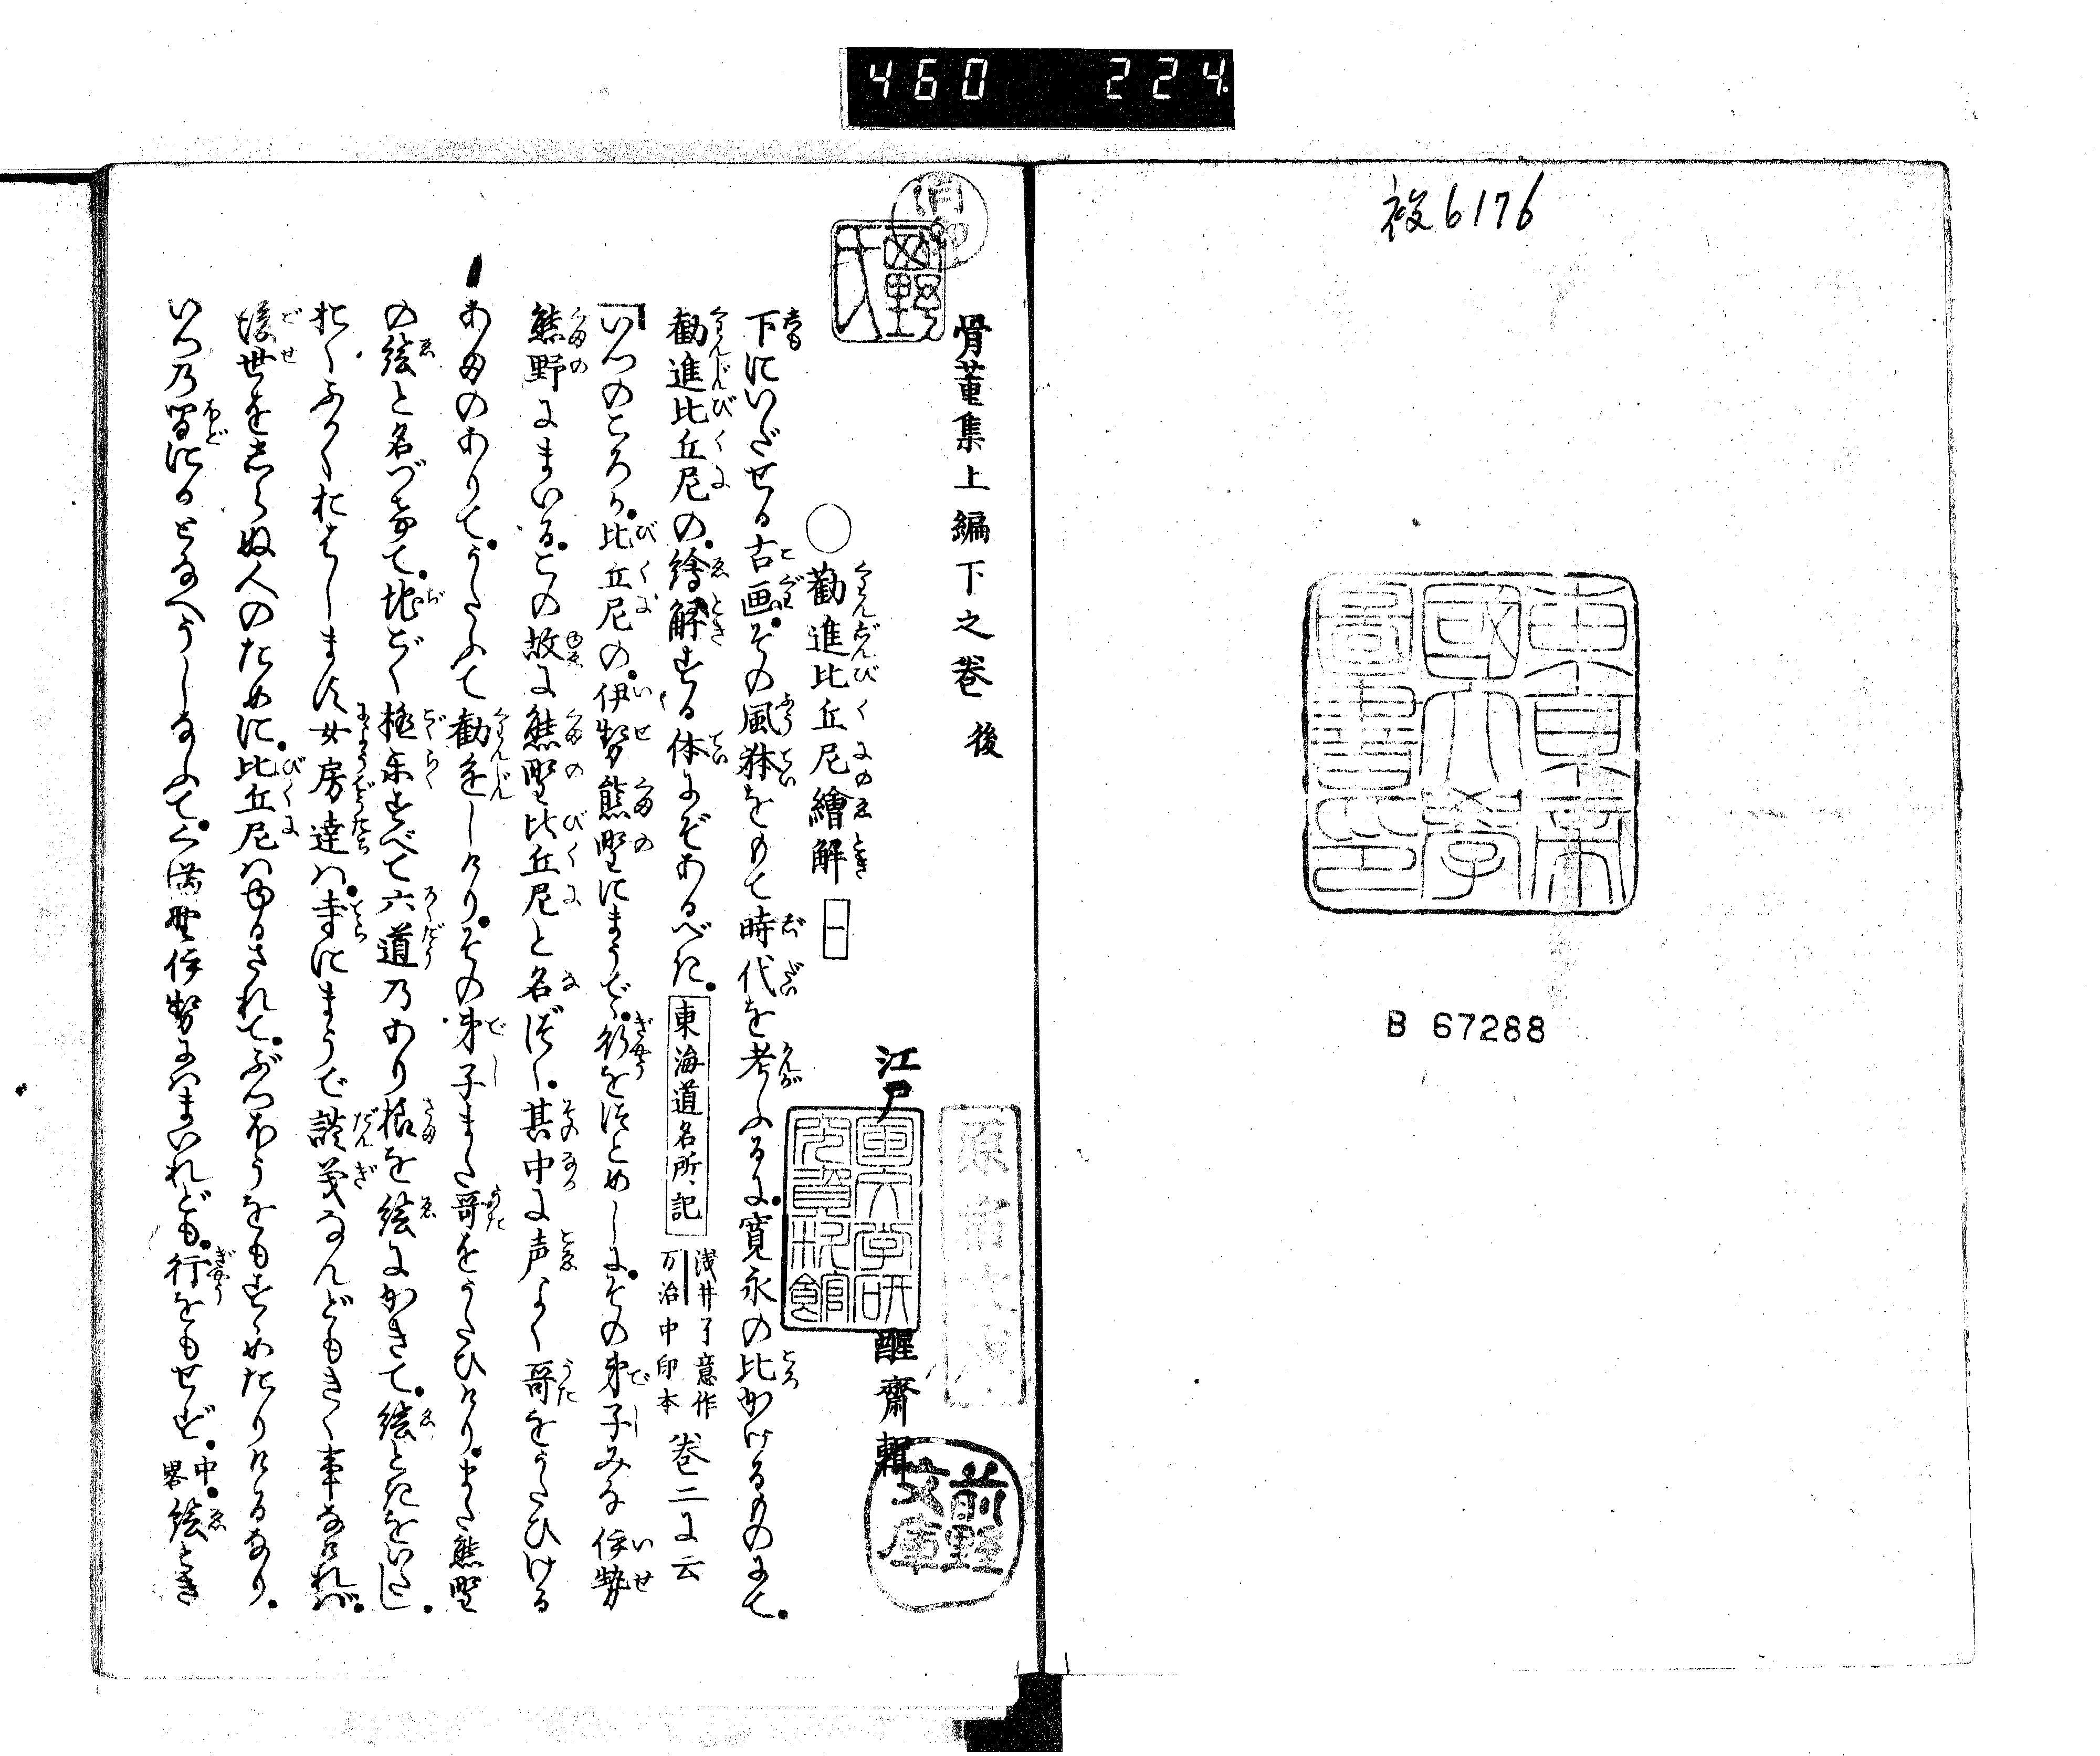 460 224.
衩6176
東京帝
國大學
圖書印
B 67288
骨董集上編下之巻 後
江戸 醒齋輯
前野
文庫
○勸進比丘尼繪解 一
下にいだせる古画。その風躰をもて時代を考ふるに。寛永の比かけるものにて。
勧進比丘尼の。繪解する体にぞあるべき。東海道名所記 浅井了意作 万治中印本 巻二に云
「いつのころか。比丘尼の。伊勢熊野にまうで。行をつとめしに。その弟子みな伊勢
熊野にまいる。この故に熊野比丘尼と名づく。其中に声よく哥をうたひける
あまのありて。うたふて勧進しけり。その弟子また哥をうたひけり。また熊野
の絵と名づけて。地ごく極楽すべて六道のあり様を絵にかきて。絵ときをいたし。
おくふかくおはします女房達は。寺にまうで談義なんどもきく事なければ。
後世をしらぬ人のために。比丘尼はゆるされて。ぶつほうをもすゝめたりけるなり。
いつの間にかとなへうしなふて。くま野伊勢にはまいれども。行をもせず。中畧 絵とき